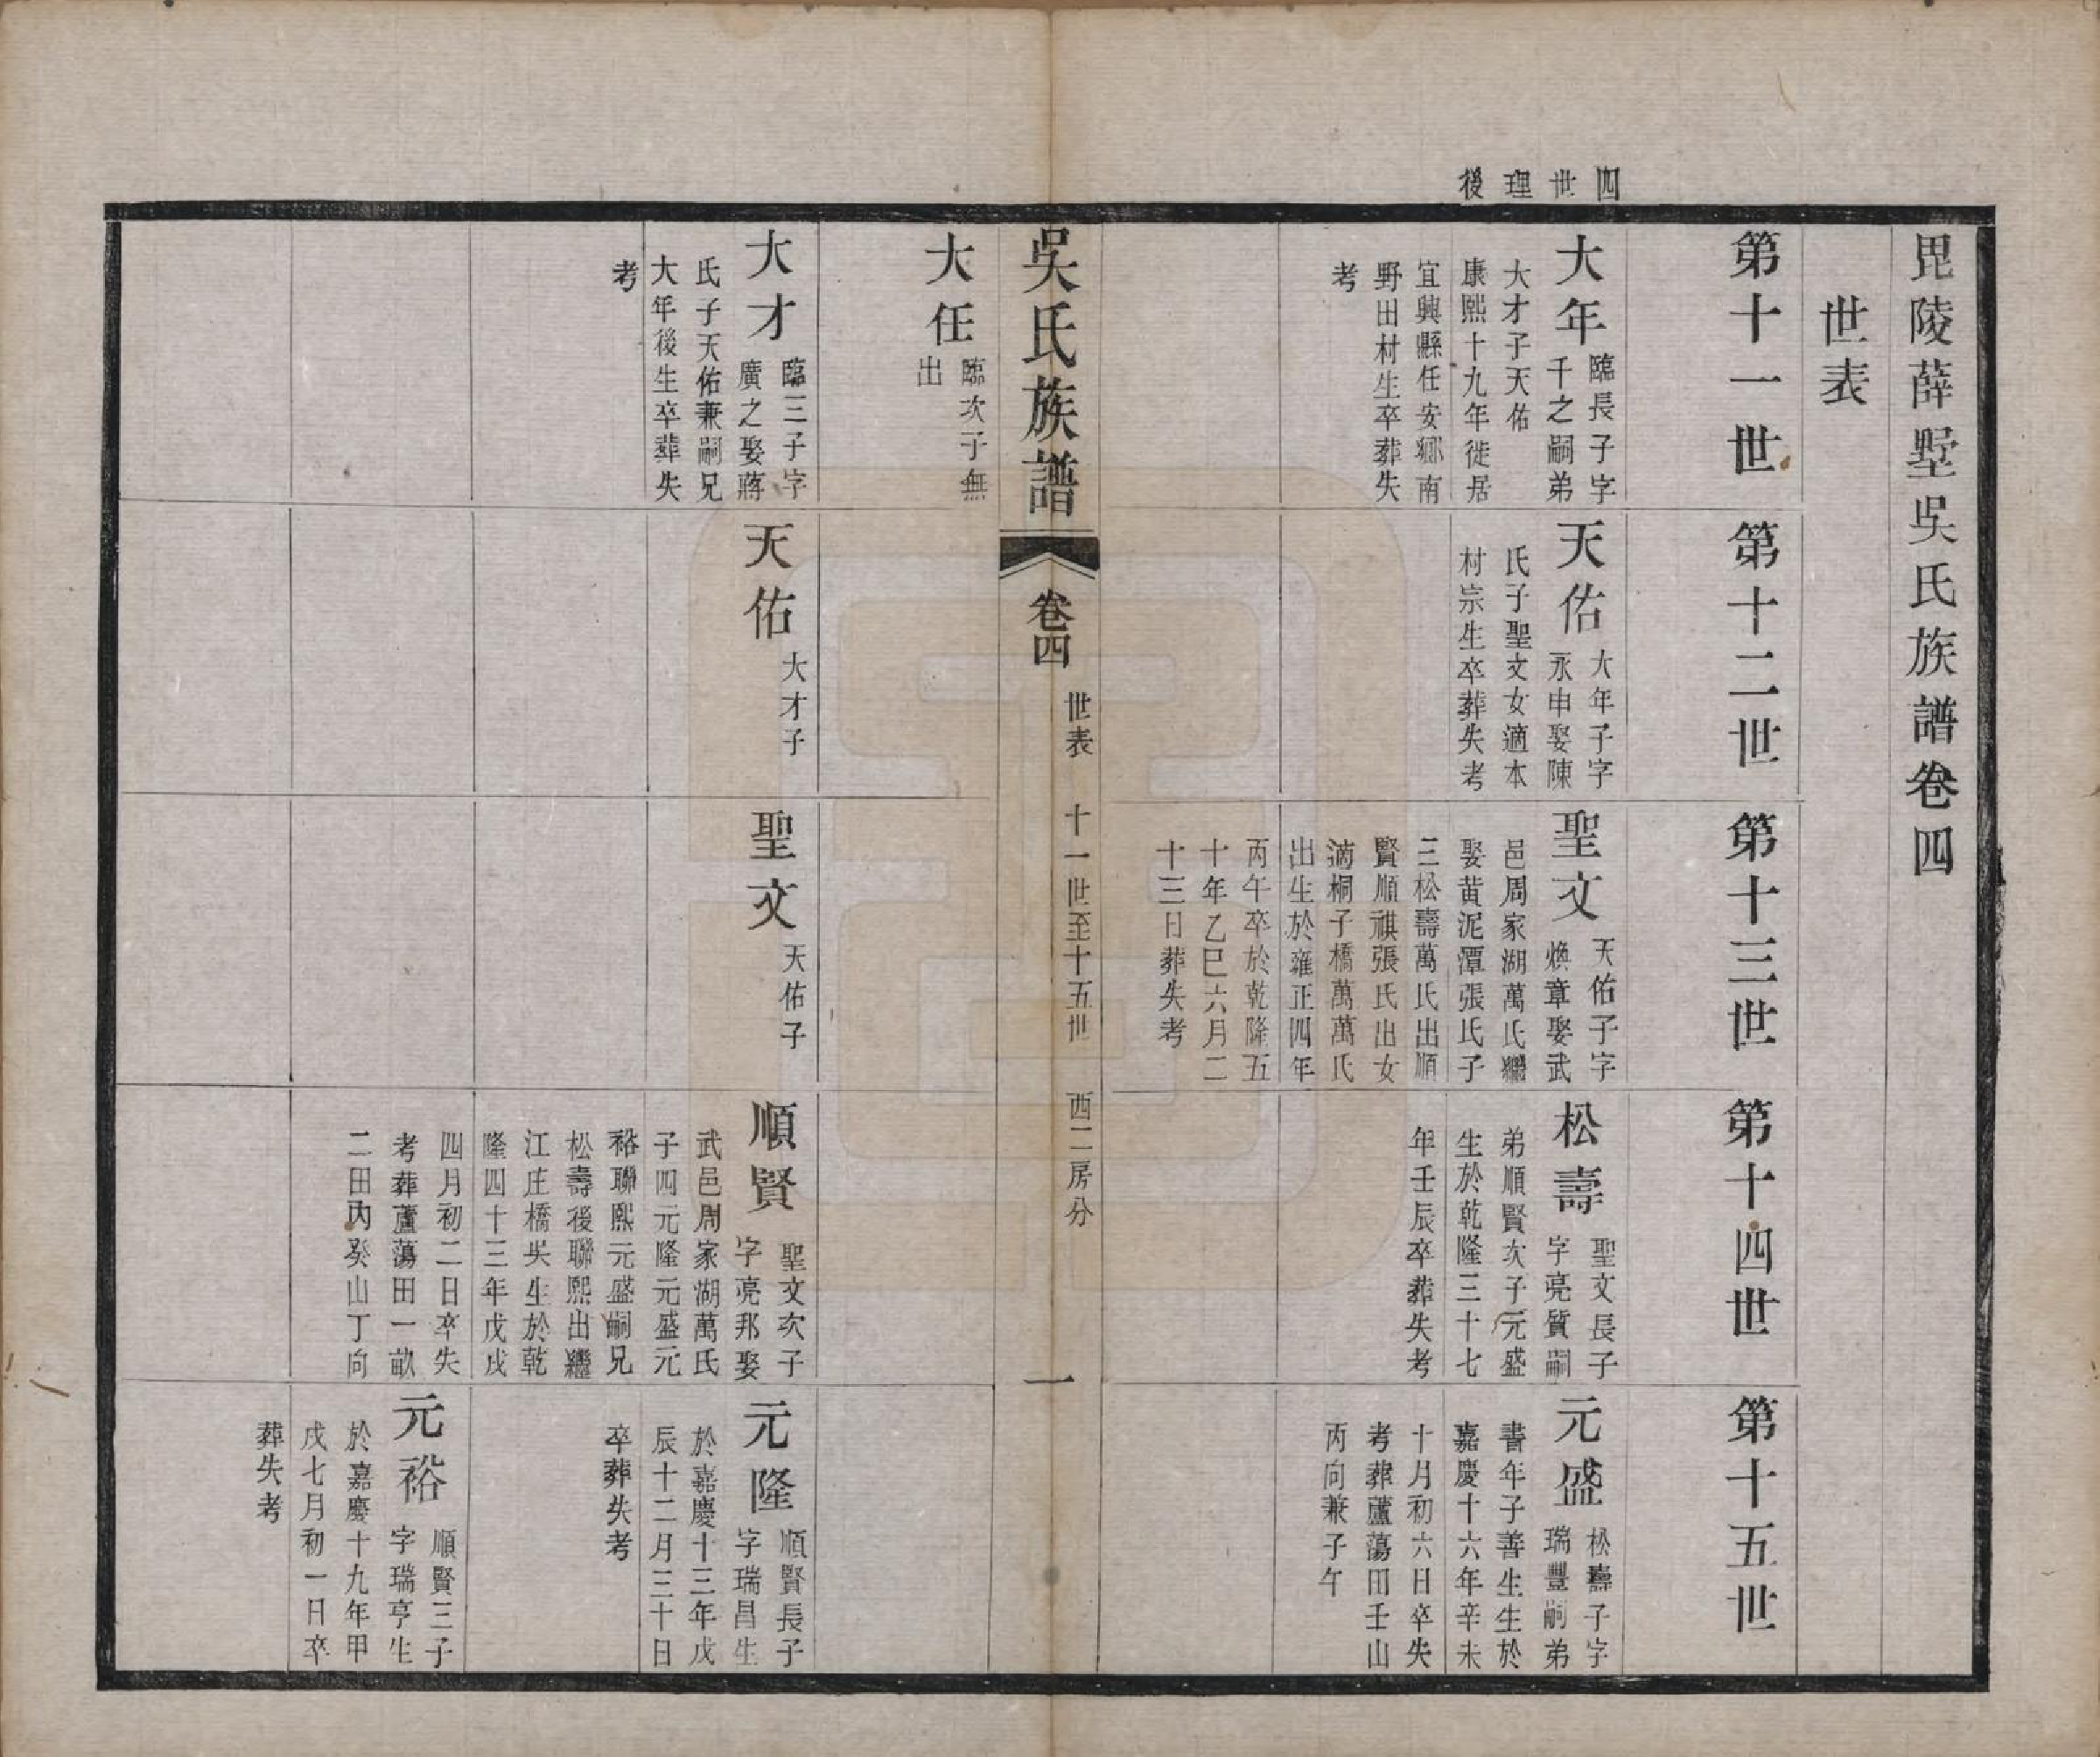 毘陵薛墅吳氏族譜卷四
世表
四世理後
第十一世
第十二世
第十三世
第十四世
第十五世
大年
臨長子字
千之嗣弟
大才子天佑
康熙十九年徙居
宜興縣任安鄉南
野田村生卒葬失
考
天佑
大年子字
永申娶陳
氏子聖文女適本
村宗生卒葬失考
聖文
天佑子字
煥章娶武
邑周家湖萬氏繼
娶黃泥潭張氏子
三松壽萬氏出順
賢順祺張氏出女
適桐子橋萬萬氏
出生於雍正四年
丙午卒於乾隆五
十年乙巳六月二
十三日葬失考
松壽
聖文長子
字亮質嗣
弟順賢次子元盛
生於乾隆三十七
年壬辰卒葬失考
元盛
松壽子字
瑞豐嗣弟
書年子善生生於
嘉慶十六年辛未
十月初六日卒失
考葬蘆蕩田壬山
丙向兼子午
吳氏族譜
卷四
世表
十一世至十五世
西二房分
一
大任
臨次子無
出
大才
臨三子字
廣之娶蔣
氏子天佑兼嗣兄
大年後生卒葬失
考
天佑
大才子
聖文
天佑子
順賢
聖文次子
字亮邦娶
武邑周家湖萬氏
子四元隆元盛元
裕聯熙元盛嗣兄
松壽後聯熙出繼
江庄橋吳生於乾
隆四十三年戊戌
四月初二日卒失
考葬蘆蕩田一畝
二田內癸山丁向
元隆
順賢長子
字瑞昌生
於嘉慶十三年戊
辰十二月三十日
卒葬失考
元裕
順賢三子
字瑞亨生
於嘉慶十九年甲
戌七月初一日卒
葬失考